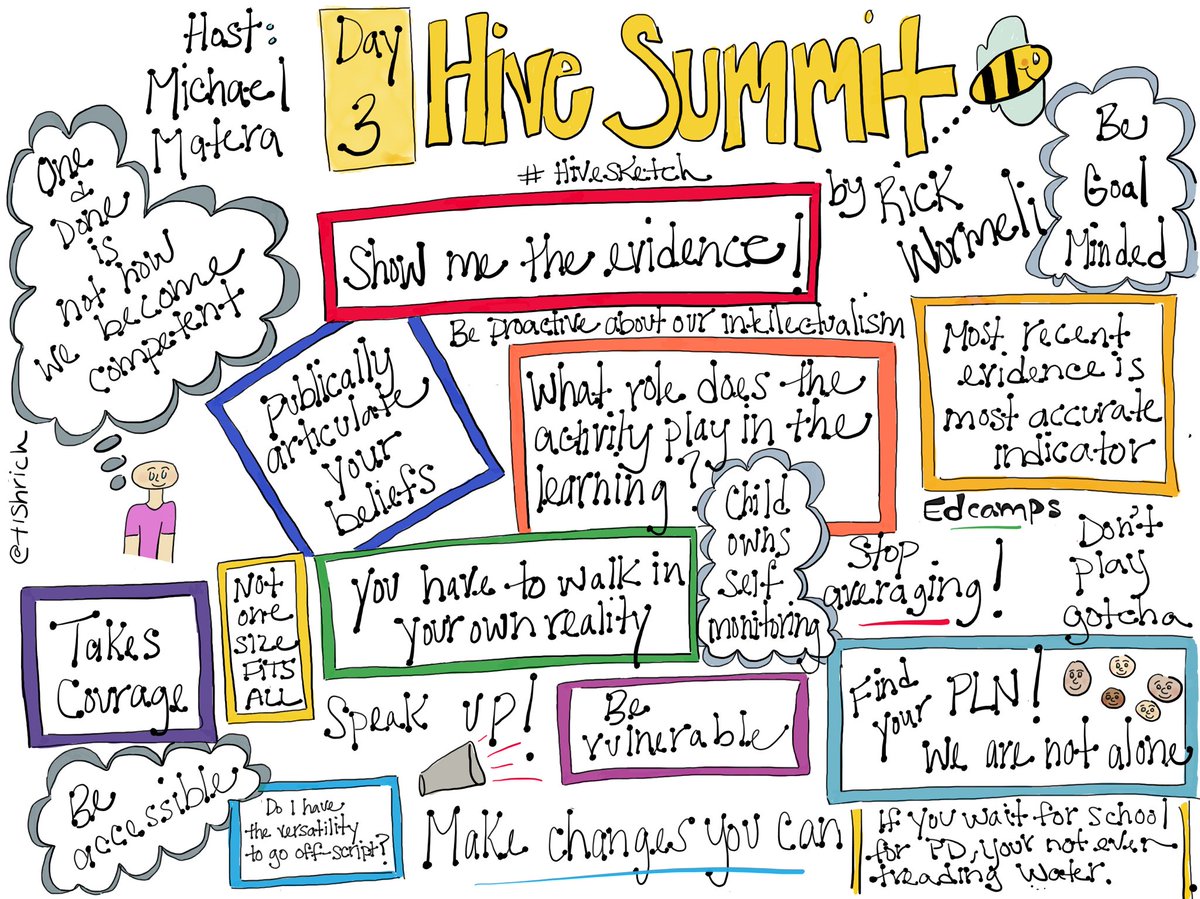 Host:
Michael
Matera
Day
3
Hive Summit
#HiveSketch
by Rick
Wormeli
Be
Goal
Minded
One
&
Done
is
not how
we become
competent
Show me the evidence!
Be proactive about our intellectualism
Publically
articulate
your
beliefs
What role does the
activity play in the
learning?
Most recent
evidence is
most accurate
indicator
@tishrich
Child
owns
self
monitoring
Edcamps
Stop
averaging!
Don't
play
gotcha
Takes
Courage
Not
one
size
FITS
ALL
You have to walk in
your own reality
Speak up!
Be
vulnerable
Find
your PLN!
we are not alone
Be
accessible
Do I have
the versatility
to go off-script?
Make changes you can
If you wait for school
for PD, your not even
treading water.